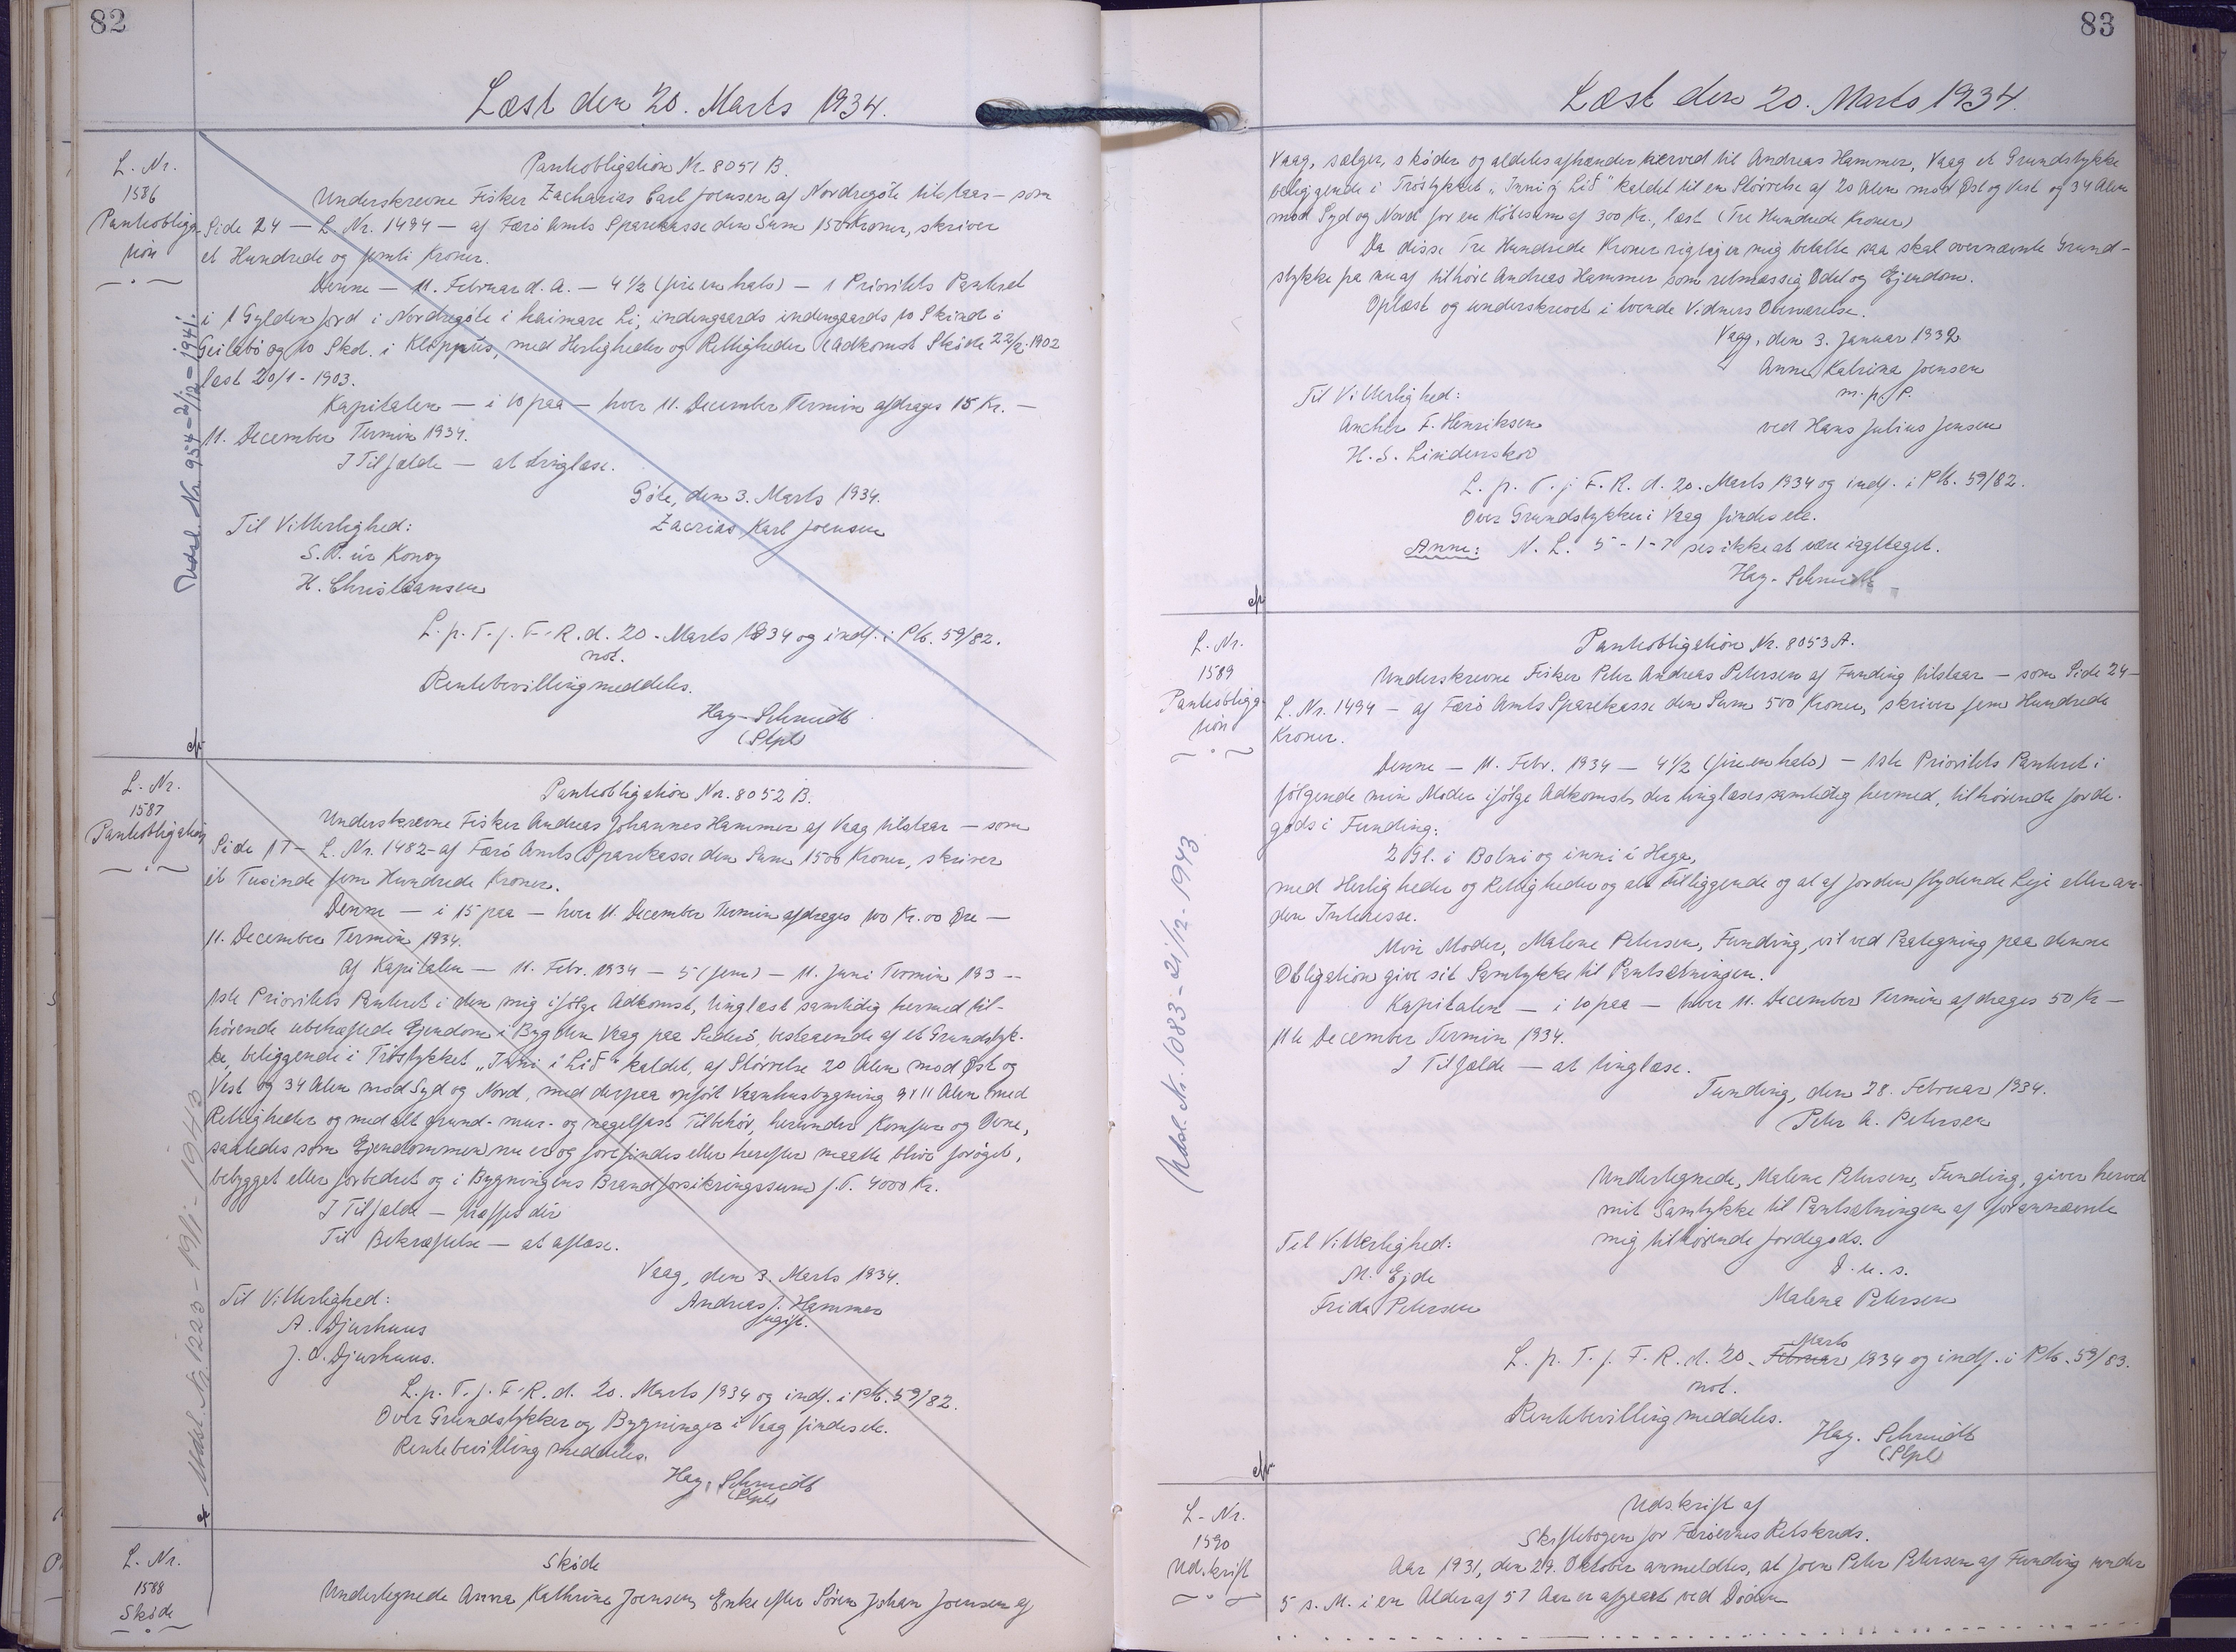 82
Læst den 20. Marts 1934.
L. Nr.
1586
Pantobliga-
tion
Pantobligation Nr. 8051 B.
Underskrevne Fisker Zacharias Carl Joensen af Nordregöte tilstaar — som
Side 24 — L. Nr. 1494 — af Færö Amts Sparekasse den Sum 150 Kroner, skriver
et Hundrede og femti Kroner.
Denne — 11. Februar d. A. — 4 1/2 (fire en halv) — 1 Prioritets Panteret
i 1 Gylden Jord i Nordregöte i haimare Li, indengaards indengaards 10 Skind i
Geilabö og 10 Skd. i Klöppus, med Herligheder og Rettigheder (Adkomst Sköde 22/2-1902
læst 20/1 - 1903.
Kapitalen — i 10 paa — hver 11. December Termin afdrages 15 Kr. —
11. December Termin 1934.
I Tilfælde — at tinglæse.
Göte, den 3. Marts 1934.
Zacrias Karl Joensen
Til Vitterlighed:
S. P. úr Konoy
H. Christiansen
L. p. T. f. F. R. d. 20. Marts 1934 og indf. i Ptb. 59/82.
not.
Rentebevilling meddeles.
Hay-Schmidt
(Stpl)
Udsl. Nr. 954-2/12-1941.
L. Nr.
1587
Pantobligation
Pantobligation Nr. 8052 B.
Underskrevne Fisker Andreas Johannes Hammer af Vaag tilstaar — som
Side 17 — L. Nr. 1482 - af Færö Amts Sparekasse den Sum 1500 Kroner, skriver
et Tusinde fem Hundrede Kroner.
Denne — i 15 paa — hver 11. December Termin afdrages 100 Kr. 00 Øre —
11. December Termin 1934.
Af Kapitalen — 11. Febr. 1934 — 5 (fem) — 11. Juni Termin 193 --
1ste Prioritets Panteret i den mig ifölge Adkomst, tinglæst samtidig hermed til-
hörende ubehæftede Ejendom i Bygden Vaag paa Suderö, bestaaende af et Grundstyk-
ke, beliggende i Tröstykket „Inni í Lið" kaldet, af Störrelse 20 Alen mod Øst og
Vest og 34 Alen mod Syd og Nord, med derpaa opfört Vaanhusbygning 9x11 Alen med
Rettigheder og med alt grund- mur- og nagelfast Tilbehör, herunder Komfur og Ovne,
saaledes som Ejendommen nu er og forefindes eller herefter maatte blive foröget,
bebygget eller forbedret og i Bygningens Brandforsikringssum f. T. 4000 Kr.
I Tilfælde — træffes dér
Til Bekræftelse — at aflæse.
Vaag, den 3. Marts 1934.
Andreas J. Hammer
ugift.
Til Vitterlighed:
A. Djurhuus
J. C. Djurhuus.
L. p. T. f. F. R. d. 20. Marts 1934 og indf. i Ptb. 59/82.
Over Grundstykker og Bygninger i Vaag findes etc.
Rentebevilling meddeles.
Hay-Schmidt
(Stpl)
Udsl. Nr. 1223 - 19/1 - 1943
L. Nr.
1588
Sköde
Sköde
Undertegnede Anna Kathrine Joensen, Enke efter Sören Johan Joensen af
83
Læst den 20. Marts 1934.
Vaag, sælger, sköder og aldeles afhænder herved til Andreas Hammer, Vaag et Grundstykke
beliggende i Tröstykket „Inni í Lið" kaldet til en Störrelse af 20 Alen mod Øst og Vest og 34 Alen
mod Syd og Nord for en Köbesum af 300 Kr., læst (Tre Hundrede Kroner)
Da disse Tre Hundrede Kroner rigtig er mig betalte saa skal overnævnte Grund-
stykke fra nu af tilhöre Andreas Hammer som retmæssig Odel og Ejendom.
Oplæst og underskrevet i tvende Vidners Overværelse.
Vaag, den 3. Januar 1932
Anna Katrina Joensen
m. f. P.
ved Hans Julius Jensen
Til Vitterlighed:
Ancher F. Henriksen
H. S. Lindenskov
L. p. T. f. F. R. d. 20. Marts 1934 og indf. i Ptb. 59/82.
Over Grundstykker i Vaag findes etc.
Anm: N. L. 5 - 1 - 7 ses ikke at være iagttaget.
Hay-Schmidt
L. Nr.
1589
Pantobliga-
tion
Pantobligation Nr. 8053 A.
Underskrevne Fisker Peter Andreas Petersen af Funding tilstaar — som Side 24 —
L. Nr. 1494 — af Færö Amts Sparekasse den Sum 500 Kroner, skriver fem Hundrede
Kroner.
Denne — 11. Febr. 1934 — 4 1/2 (fire en halv) — 1ste Prioritets Panteret i
fölgende min Moder ifölge Adkomst, der tinglæses samtidig hermed, tilhörende Jorde-
gods i Funding:
2 Gl. i Botni og inni í Haga,
med Herligheder og Rettigheder og alt tilliggende og al af Jorden flydende Leje eller an-
den Interesse.
Min Moder, Malene Petersen, Funding, vil ved Paategning paa denne
Obligation give sit Samtykke til Pantsætningen.
Kapitalen — i 10 paa — hver 11. December Termin afdrages 50 Kr —
11te December Termin 1934.
I Tilfælde — at tinglæse.
Funding, den 28. Februar 1934.
Peter A. Petersen
Undertegnede, Malene Petersen, Funding, giver herved
mit Samtykke til Pantsætningen af forannævnte
mig tilhörende Jordegods.
D. u. s.
Malena Petersen
Til Vitterlighed:
M. Ejde
Frida Petersen
L. p. T. f. F. R. d. 20. Februar Marts 1934 og indf. i Ptb. 59/83.
not.
Rentebevilling meddeles.
Hay-Schmidt
(Stpl)
Udsl. Nr. 1083 - 21/12-1943
L. Nr.
1590
Udskrift
Udskrift af
Skiftebogen for Færöernes Retskreds.
Aar 1931, den 29. Oktober anmeldtes, at Joen Peter Petersen af Funding under
5 s. M. i en Alder af 57 Aar er afgaaet ved Döden